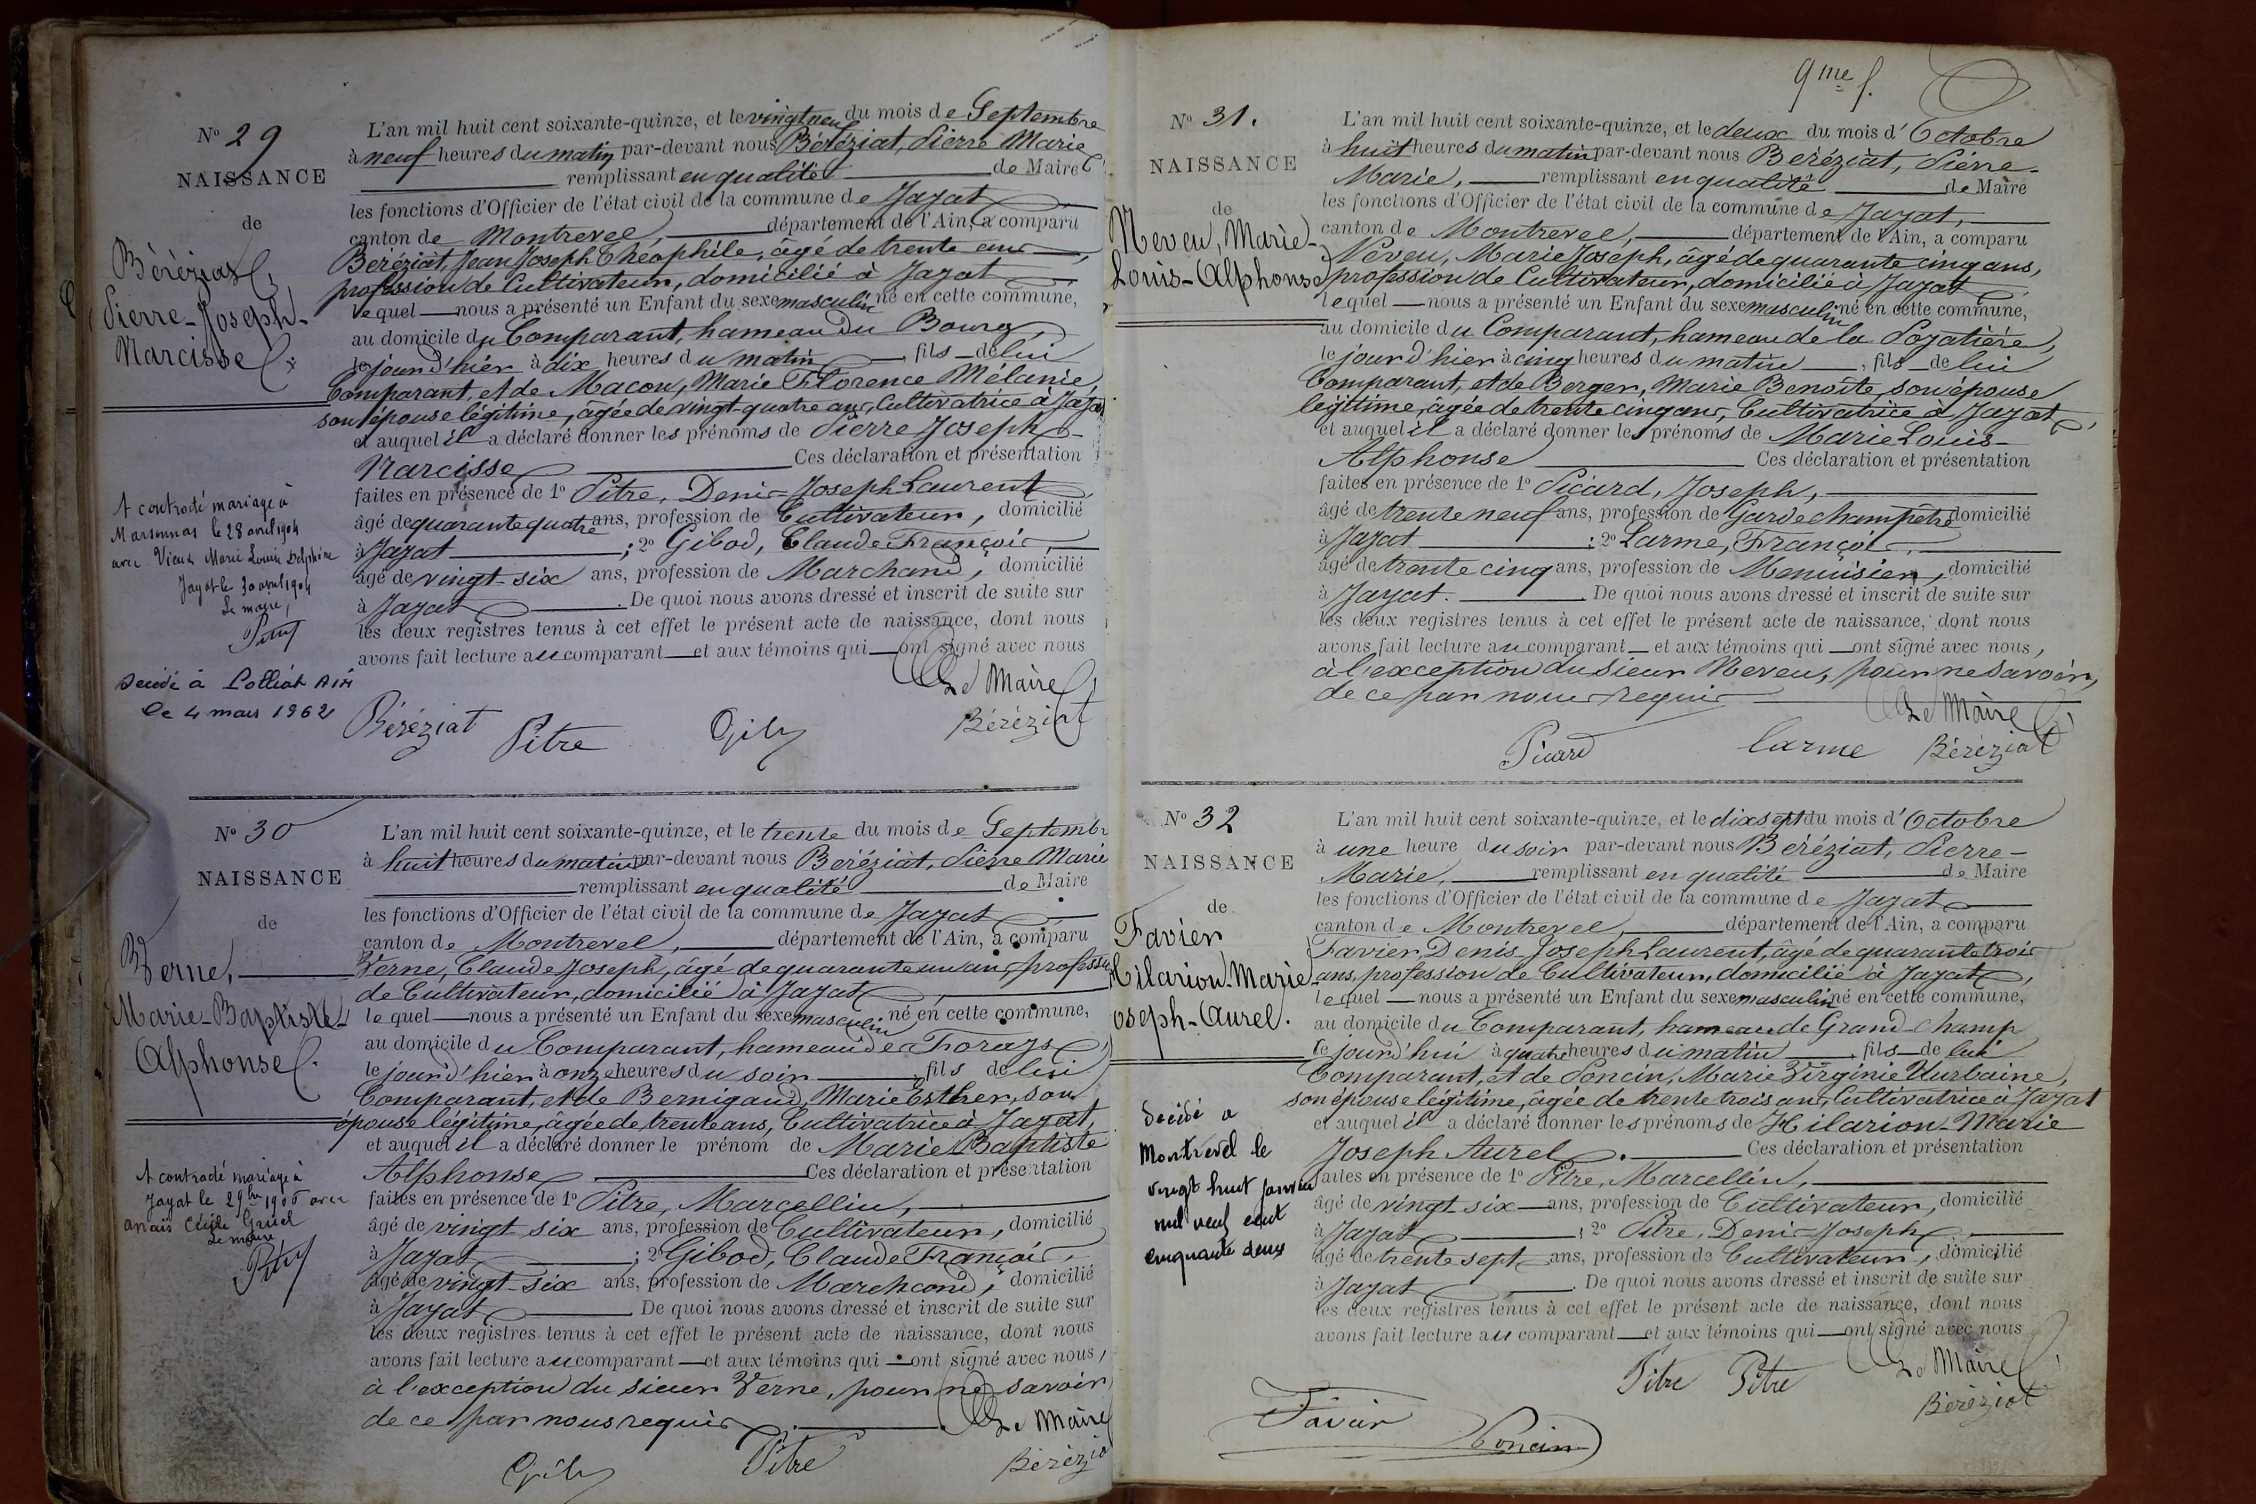 9me f.
No 29
NAISSANCE
de
Béréziat,
Pierre-Joseph-
Narcisse
L'an mil huit cent soixante-quinze, et le vingt neuf du mois de Septembre
à neuf heures du matin par-devant nous Béréziat, Pierre Marie
remplissant en qualité de Maire
les fonctions d'Officier de l'état civil de la commune de Jayat
canton de Montrevel, département de l'Ain, a comparu
Béréziat, Jean Joseph Théophile, âgé de trente ans,
profession de Cultivateur, domicilié à Jayat
lequel nous a présenté un Enfant du sexe masculin né en cette commune,
au domicile du Comparant, hameau du Bourg,
le jour d'hier à dix heures du matin, fils de lui
Comparant, et de Macon, Marie Florence Mélanie,
son épouse légitime, âgée de vingt-quatre ans, Cultivatrice à Jayat
et auquel il a déclaré donner les prénoms de Pierre Joseph
Narcisse Ces déclaration et présentation
faites en présence de 1o Pitre, Denis-Joseph Laurent
âgé de quarante quatre ans, profession de Cultivateur, domicilié
à Jayat ; 2o Gibod, Claude François,
âgé de vingt-six ans, profession de Marchand, domicilié
à Jayat. De quoi nous avons dressé et inscrit de suite sur
les deux registres tenus à cet effet le présent acte de naissance, dont nous
avons fait lecture au comparant et aux témoins qui ont signé avec nous
Le Maire
Béréziat Pitre Béréziat
A contracté mariage à
Marsonnas le 28 avril 1904
avec Vieux Marie Louise Delphine
Jayat le 30 avril 1904
Le maire,
Décédé à Polliat AIN
le 4 mars 1962
No 30
NAISSANCE
de
Verne,
Marie-Baptiste-
Alphonse.
L'an mil huit cent soixante-quinze, et le trente du mois de Septembr
à huit heures du matin par-devant nous Béréziat, Pierre Marie
remplissant en qualité de Maire
les fonctions d'Officier de l'état civil de la commune de Jayat
canton de Montrevel, département de l'Ain, a comparu
Verne, Claude Joseph, âgé de quarante un ans, profession
de Cultivateur, domicilié à Jayat,
lequel nous a présenté un Enfant du sexe masculin né en cette commune,
au domicile du Comparant, hameau de
le jour d'hier à onze heures du soir, fils de lui
Comparant, et de Bernigaud, Marie Esther, son
épouse légitime, âgée de trente ans, Cultivatrice à Jayat,
et auquel il a déclaré donner le prénom de Marie Baptiste
Alphonse Ces déclaration et présentation
faites en présence de 1o Pitre, Marcellin,
âgé de vingt six ans, profession de Cultivateur, domicilié
à Jayat ; 2o Gibod, Claude François,
âgé de vingt-six ans, profession de Marchand, domicilié
à Jayat. De quoi nous avons dressé et inscrit de suite sur
les deux registres tenus à cet effet le présent acte de naissance, dont nous
avons fait lecture au comparant et aux témoins qui ont signé avec nous,
à l'exception du sieur Verne, pour ne savoir
de ce par nous requis.
Le Maire
Pitre Béréziat
A contracté mariage à
Jayat le 1906 avec
Le maire
No 31.
NAISSANCE
de
Neveu, Marie-
Louis-Alphonse
L'an mil huit cent soixante-quinze, et le deux du mois d'Octobre
à huit heures du matin par-devant nous Béréziat, Pierre-
Marie, remplissant en qualité de Maire
les fonctions d'Officier de l'état civil de la commune de Jayat,
canton de Montrevel, département de l'Ain, a comparu
Neveu, Marie Joseph, âgé de quarante cinq ans,
profession de Cultivateur, domicilié à Jayat
lequel nous a présenté un Enfant du sexe masculin né en cette commune,
au domicile du Comparant, hameau de la
le jour d'hier à cinq heures du matin, fils de lui
Comparant, et de Berger, Marie Benoite, son épouse
légitime, âgée de trente cinq ans, Cultivatrice à Jayat,
et auquel il a déclaré donner les prénoms de Marie Louis-
Alphonse Ces déclaration et présentation
faites en présence de 1o Picard, Joseph,
âgé de trente neuf ans, profession de Garde champêtre domicilié
à Jayat ; 2o Larme, François,
âgé de trente cinq ans, profession de Menuisier, domicilié
à Jayat. De quoi nous avons dressé et inscrit de suite sur
les deux registres tenus à cet effet le présent acte de naissance, dont nous
avons fait lecture au comparant et aux témoins qui ont signé avec nous,
à l'exception du sieur Neveu, pour ne savoir,
de ce par nous requis
Le Maire
Picard Larme Béréziat
No 32
NAISSANCE
de
Favier
Hilarion-Marie-
oseph-Aurel.
L'an mil huit cent soixante-quinze, et le dix sept du mois d'Octobre
à une heure du soir par-devant nous Béréziat, Pierre-
Marie, remplissant en qualité de Maire
les fonctions d'Officier de l'état civil de la commune de Jayat
canton de Montrevel, département de l'Ain, a comparu
Favier Denis-Joseph Laurent, âgé de quarante trois
ans, profession de Cultivateur, domicilié à Jayat,
lequel nous a présenté un Enfant du sexe masculin né en cette commune,
au domicile du Comparant, hameau de Grand-Champ
le jourd'hui à quatre heures du matin, fils de lui
Comparant, et de Poncin, Marie Virginie Uurbaine,
son épouse légitime, âgée de trente trois ans, Cultivatrice à Jayat
et auquel il a déclaré donner les prénoms de Hilarion-Marie
Joseph Aurel. Ces déclaration et présentation
faites en présence de 1o Pitre, Marcellin,
âgé de vingt six ans, profession de Cultivateur, domicilié
à Jayat ; 2o Pitre, Denis-Joseph
âgé de trente sept ans, profession de Cultivateur, domicilié
à Jayat. De quoi nous avons dressé et inscrit de suite sur
les deux registres tenus à cet effet le présent acte de naissance, dont nous
avons fait lecture au comparant et aux témoins qui ont signé avec nous
Le Maire
Pitre Pitre Béréziat
Favier Poncin
Décédé a
Montrevel le
vingt huit janvier
mil neuf cent
cinquante deux